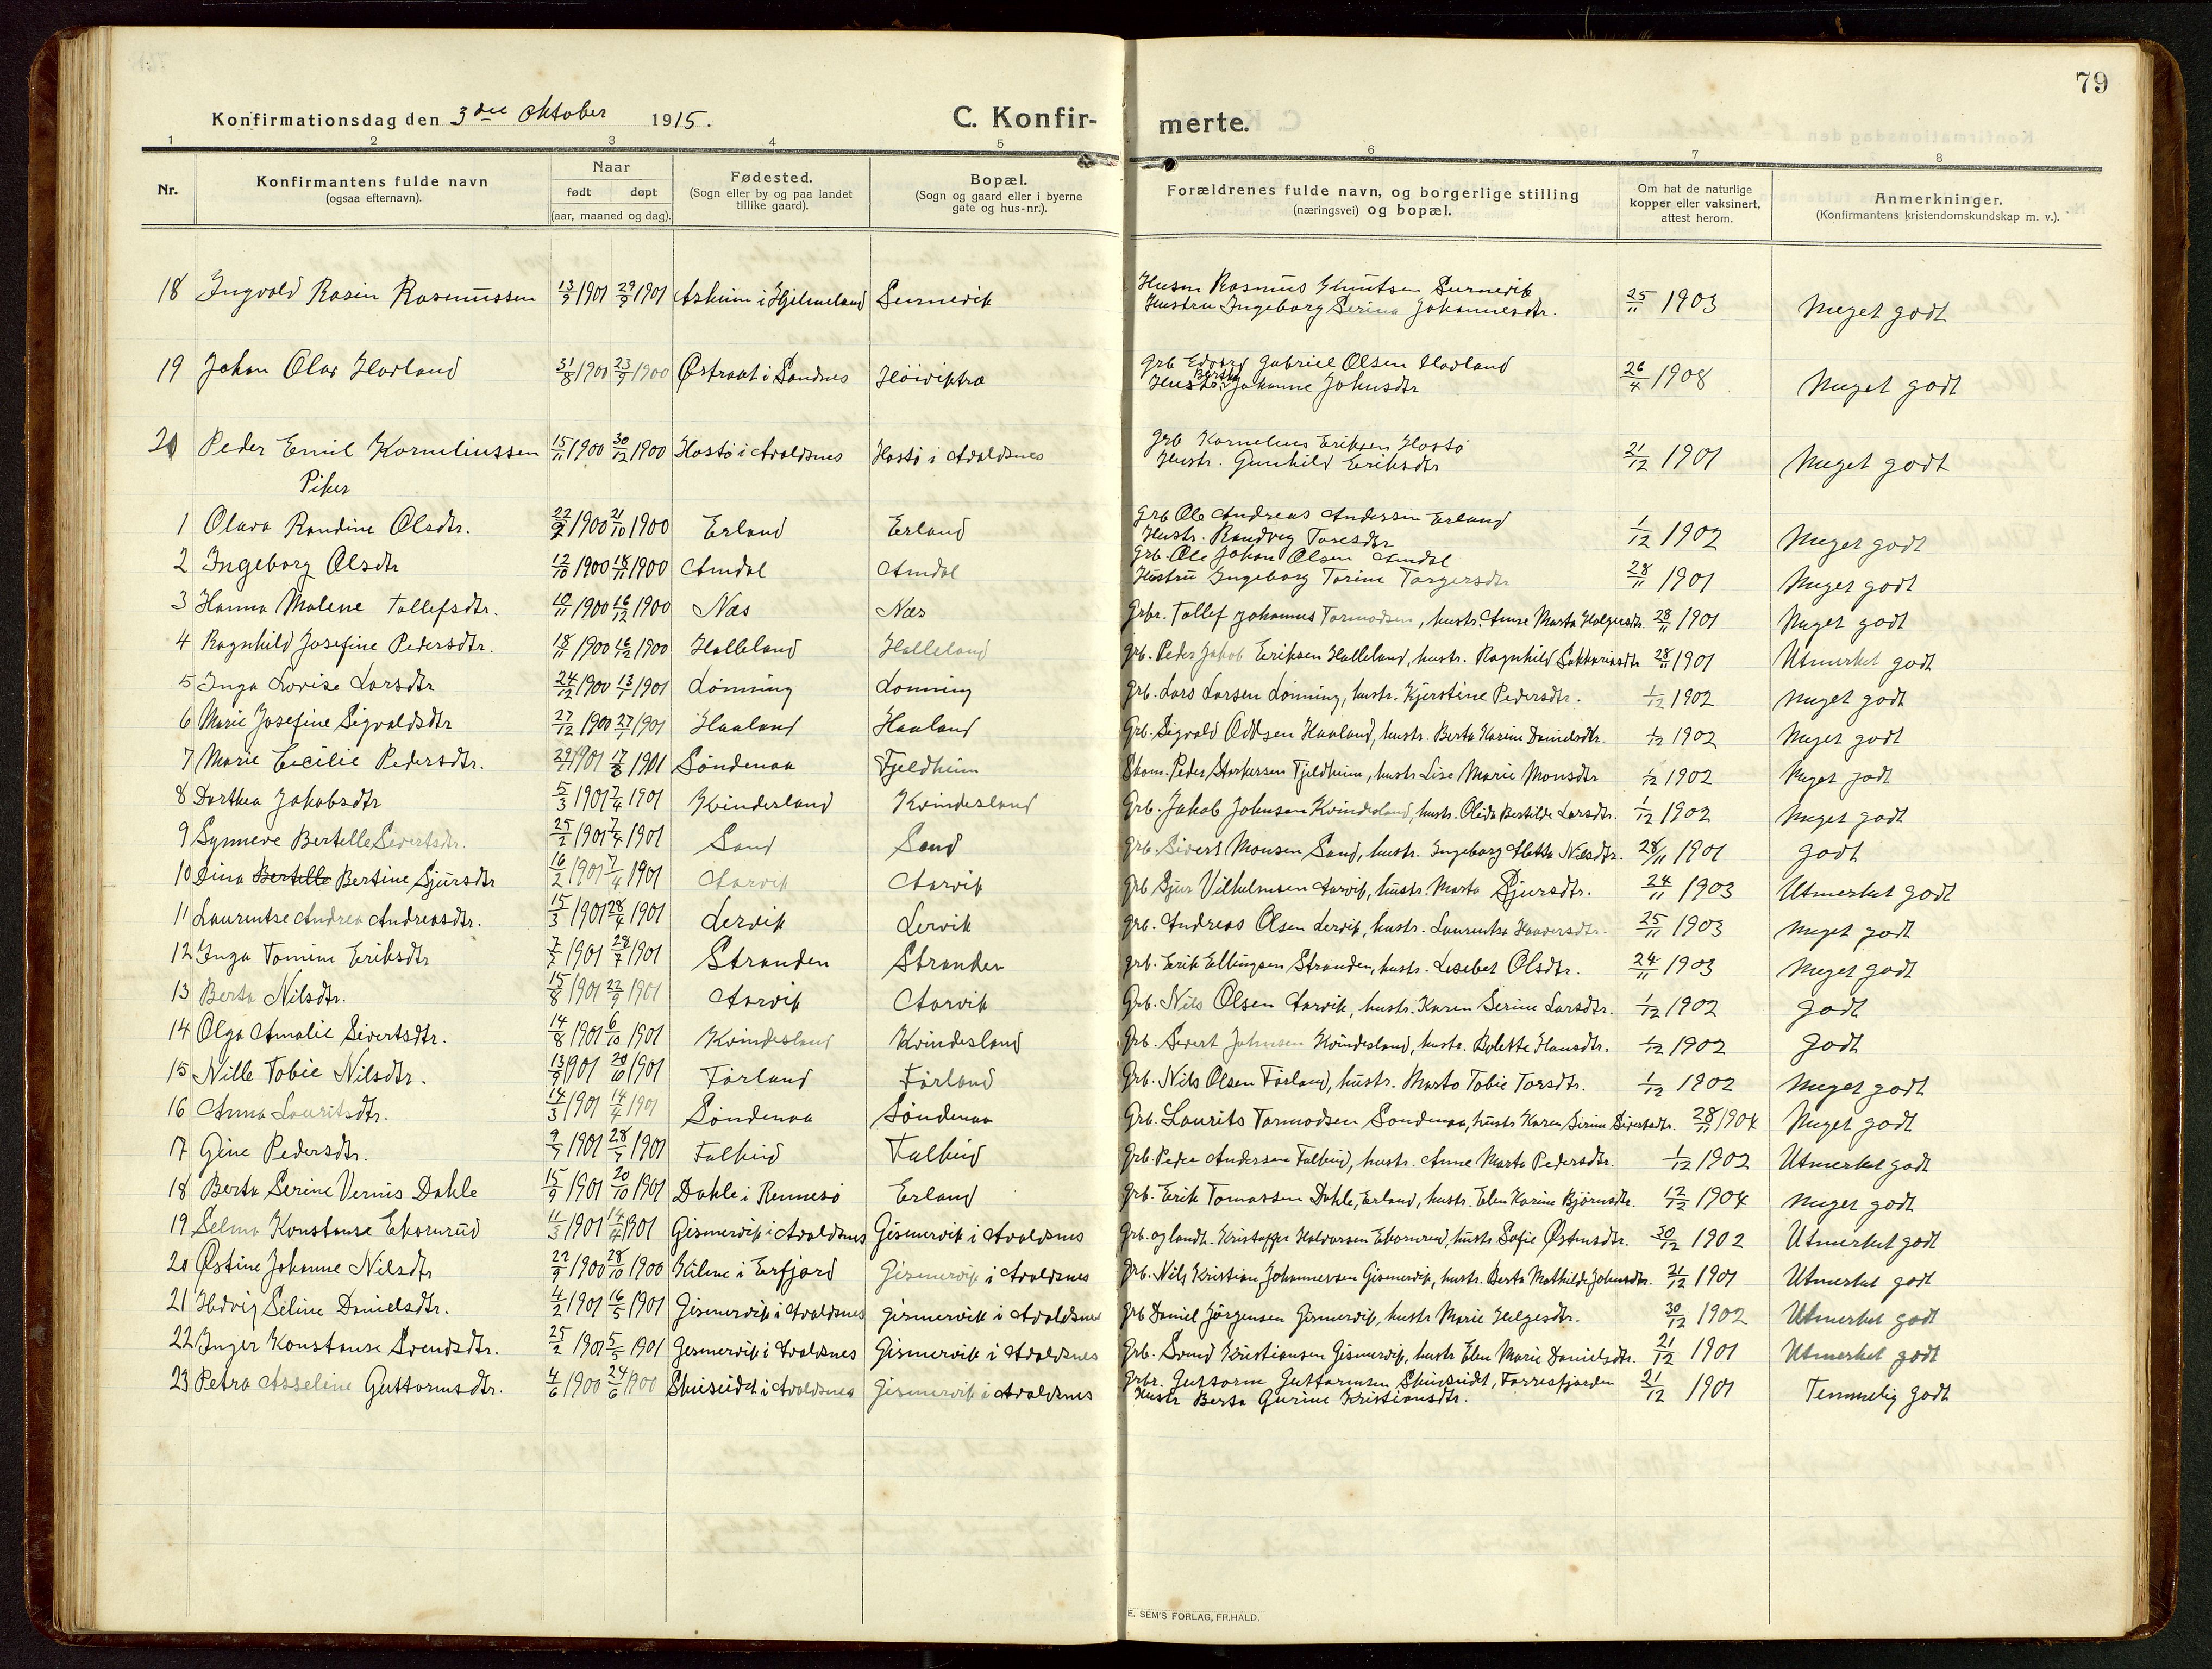 79
Konfirmationsdag den 3die Oktober 1915.
C. Konfir-
merte.
1 2 3 4 5 6 7 8
Nr.
Konfirmantens fulde navn
(ogsaa efternavn).
Naar
født døpt
(aar, maaned og dag).
Fødested.
(Sogn eller by og paa landet
tillike gaard).
Bopæl.
(Sogn og gaard eller i byerne
gate og hus-nr.).
Forældrenes fulde navn, og borgerlige stilling
(næringsvei) og bopæl.
Om hat de naturlige
kopper eller vaksinert,
attest herom.
Anmerkninger.
(Konfirmantens kristendomskundskap m. v.).
18 Ingvald Rasin Rasmussen 13/9 1901 29/9 1901 i Hjelmeland Husm Rasmus Knutsen
Hustru Ingeborg Serina Johannesdtr. 25/11 1903 Meget godt
19 Johan Olav Havland 31/8 1900 23/9 1900 Østraat i Sandnes Grb Edvard Gabriel Olsen Havland
Hustr. Berthe Johanne Johnsdtr 26/4 1908 Meget godt
20 Peder Emil Korneliussen 15/11 1900 30/12 1900 Hastø i Avaldsnes Hastø i Avaldsnes Grb Kornelius Eriksen Hastø
Hustr. Gunhild Eriksdtr 21/12 1901 Meget godt
Piker
1 Olava Randine Olsdtr. 22/9 1900 21/10 1900 Erland Erland Grb Ole Andreas Andersen Erland
Hustr. Randveg Taresdtr 1/12 1902 Meget godt
2 Ingeborg Olsdtr 12/10 1900 18/11 1900 Amdal Amdal Grb. Ole Johan Olsen Amdal
Hustru Ingeborg Torine Torgersdtr 28/11 1901 Meget godt
3 Hanna Malene Tollefsdtr. 10/11 1900 16/12 1900 Næs Næs Grbr. Tollef Johannes Tormodsen, hustr. Anne Marta Holgersdtr. 28/11 1901 Meget godt
4 Ragnhild Josefine Pedersdtr. 18/11 1900 16/12 1900 Halleland Halleland Grb. Peder Jakob Eriksen Halleland, hustr. Ragnhild Sakkariasdtr 28/11 1901 Utmerket godt
5 Inga Lovise Larsdtr 24/12 1900 13/1 1901 Lønning Lønning Grb. Lars Larsen Lønning, hustr. Kjerstine Pedersdtr. 1/12 1902 Meget godt
6 Marie Josefine Sigvaldsdtr 27/12 1900 27/1 1901 Haaland Haaland Grb. Sigvald Oddsen Haaland, hustr. Berta Karine Danielsdtr. 1/12 1902 Meget godt
7 Marie Cecilie Pedersdtr. 29/1 1901 17/3 1901 Søndenaa Fjeldheim Skom. Peder Storkersen Fjeldheim, hustr Lise Marie Monsdtr 1/12 1902 Meget godt
8 Dorthea Jakobsdtr 5/3 1901 7/4 1901 Kvindesland Kvindesland Grb. Jakob Johnsen Kvindesland, hustr. Olida Bertilde Larsdtr. 1/12 1902 Meget godt
9 Synneve Bertelle Sivertsdtr. 25/2 1901 7/4 1901 Sand Sand Grb. Sivert Monsen Sand, hustr. Ingeborg Nilsdtr. 28/11 1901 godt
10 Dina Bertelle Bertine Sjursdtr 16/2 1901 7/4 1901 Aarvik Aarvik Grb Sjur Vilhelmsen Aarvik, hustr. Marta Sjursdtr. 24/11 1903 Utmerket godt
11 Laurentse Andrea Andreasdtr. 15/3 1901 28/4 1901 Lervik Lervik Grb. Andreas Olsen Lervik, hustr. Laurentse Haaversdtr. 25/11 1903 Meget godt
12 Inga Tomine Eriksdtr 7/7 1901 28/7 1901 Stranden Stranden Grb. Erik Ellingsen Stranden, hustr. Lisebet Olsdtr. 24/11 1903 Meget godt
13 Berta Nilsdtr. 15/8 1901 22/9 1901 Aarvik Aarvik Grb. Nils Olsen Aarvik, hustr. Karen Serine Larsdtr. 1/12 1902 godt
14 Olga Amalie Sivertsdtr. 14/8 1901 6/10 1901 Kvindesland Kvindesland Grb. Sivert Johnsen Kvindesland, hustr. Bolette Hansdtr. 1/12 1902 godt
15 Nille Tobie Nilsdtr. 13/9 1901 20/10 1901 Førland Førland Grb. Nils Olsen Førland, hustr. Marta Tobie Torsdtr. 1/12 1902 Meget godt
16 Anna Lauritsdtr. 14/3 1901 14/4 1901 Søndenaa Søndenaa Grb. Laurits Tormodsen Søndenaa, hustr Karen Sirine Sivertsdtr. 28/11 1904 Meget godt
17 Gine Pedersdtr. 9/7 1901 28/7 1901 Falkeid Falkeid Grb. Peder Andersen Falkeid, hustr. Anne Marta Pedersdtr. 1/12 1902 Utmerket godt
18 Berta Serine Vernis Dahle 15/9 1901 20/10 1901 Dahle i Rennesø Erland Grb. Erik Tomassen Dahle, Erland, hustr. Elen Karine Bjørnsdtr. 12/12 1904 Meget godt
19 Selma Konstanse Ekornrud 11/3 1901 14/4 1901 Gismervik i Avaldsnes Gismervik i Avaldsnes Grb. og landh. Kristoffer Halvorsen Ekornrud, hustr Sofie Østensdtr. 30/12 1902 Utmerket godt
20 Østine Johanne Nilsdtr 22/9 1900 28/10 1900 i Erfjord Gismervik i Avaldsnes Grb. Nils Kristian Johannessen Gismervik, hustr. Berta Mathilde Johnsdtr. 21/12 1901 Utmerket godt
21 Hedvig Seline Danielsdtr. 4/2 1901 16/5 1901 Gismervik i Avaldsnes Gismervik i Avaldsnes Grb Daniel Jørgensen Gismervik, hustr Marie Helgesdtr. 30/12 1902 Utmerket godt
22 Inger Konstanse Svendsdtr. 25/2 1901 5/5 1901 Gismervik i Avaldsnes Gismervik i Avaldsnes Grb. Svend Kristiansen Gismervik, hustr Elen Marie Danielsdtr. 21/12 1901 Utmerket godt
23 Petra Asseline Guttormsdtr. 4/6 1900 24/6 1900 i Avaldsnes Gismervik i Avaldsnes Grbr. Guttorm Guttormsen Førresfjorden
Hustr Berta Gurine Kristiansdtr. 21/12 1901 Temmelig godt
E. SEM'S FORLAG, FR.HALD.